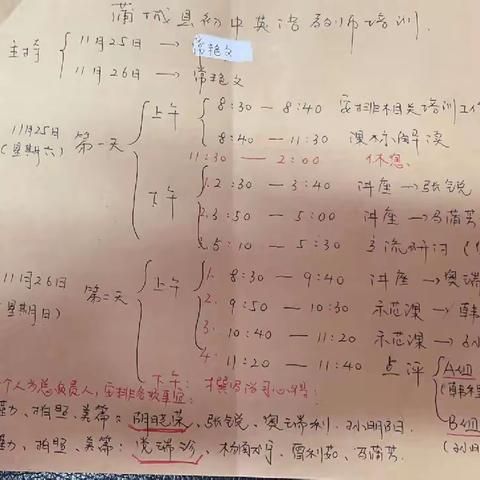 蒲城县初中英语教师培训.
主持 11月25日 → 常艳文
11月26日 → 常艳文
11月25日 (星期六) 第一天
上午
8:30 — 8:40 安排相关培训工作
8:40 — 11:30 课标解读
11:30 — 2:00 休息.
下午
1. 2:30 — 3:40 讲座 → 张锐
2. 3:50 — 5:00 讲座 → 马蒲芳
3. 5:10 — 5:30 交流研讨
11月26日 (星期日) 第二天
上午
1. 8:30 — 9:40 讲座 → 奥瑞
2. 9:50 — 10:30 示范课 → 韩
3. 10:40 — 11:20 示范课 → 孙
4. 11:20 — 11:40 点评 A组
B组
下午: 撰写学习心得:
个人为总负责人, 安排各项事宜:
拍照、美篇: 阴晓荣、张锐、奥瑞利、孙明阳.
拍照、美篇: 党瑞珍、雷利茹、马蒲芳.